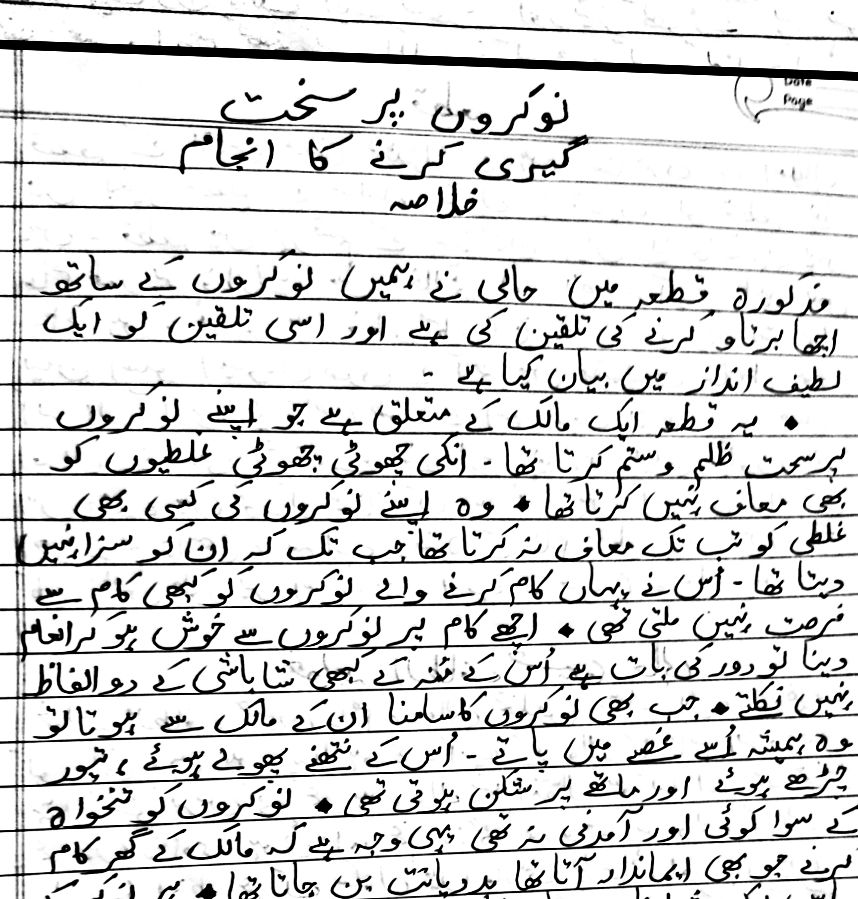 Date
Page
نوکروں پر سخت
گیری کرنے کا انجام
خلاصہ
مذکورہ قطعہ میں حالی نے ہمیں نوکروں کے ساتھ
اچھا برتاو کرنے کی تلقین کی ہے اور اسی تلقین کو ایک
لطیف انداز میں بیان کیا ہے -
• یہ قطعہ ایک مالک کے متعلق ہے جو اپنے نوکروں
پر سخت ظلم و ستم کرتا تھا - انکی چھوٹی چھوٹی غلطیوں کو
بھی معاف نہیں کرتا تھا • وہ اپنے نوکروں کی کسی بھی
غلطی کو تب تک معاف نہ کرتا تھا جب تک کہ ان کو سزا نہیں
دیتا تھا - اُس نے یہاں کام کرنے والے نوکروں کو کبھی کام سے
فرصت نہیں ملتی تھی • اچھے کام پر نوکروں سے خوش ہو کر انعام
دینا تو دور کی بات ہے اُس کے مُنہ کے کبھی شاباشی کے دو الفاظ
نہیں نکلتے • جب بھی نوکروں کا سامنا ان کے مالک سے ہوتا تو
وہ ہمیشہ اُسے غصے میں پاتے - اُس کے نتھنے پھولے ہوئے ، تیور
چڑھے ہوئے اور ماتھے پر شکن ہوتی تھی • نوکروں کو تنخواہ
کے سوا کوئی اور آمدنی نہ تھی یہی وجہ ہے کہ مالک کے گھر کام
کرنے جو بھی ایماندار آتا تھا بددیانت بن جاتا تھا •